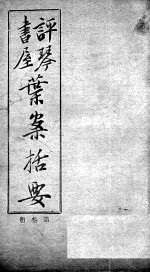 評琴書屋
葉案括要
第叁冊